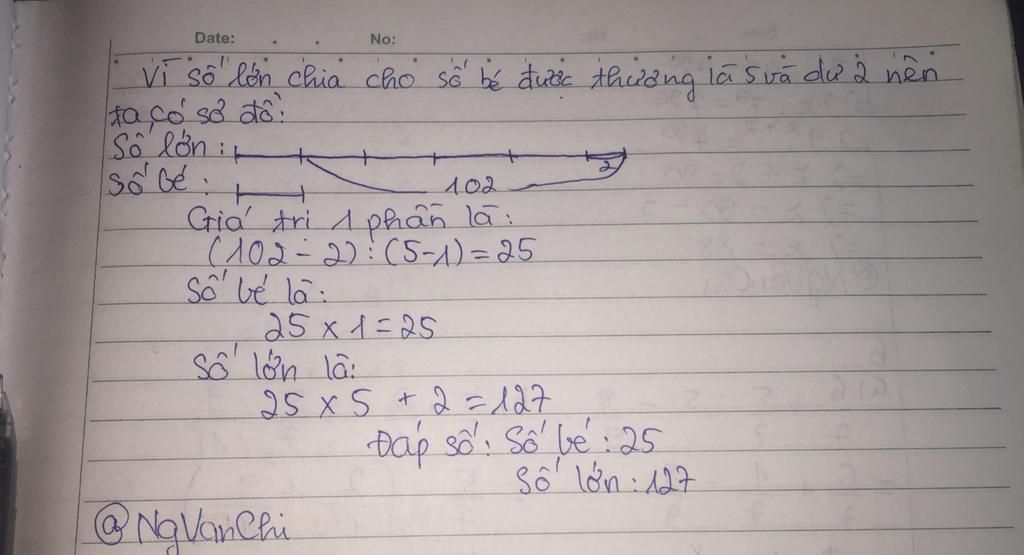 Date: . . No:
Vì số lớn chia cho số bé được thương là 5 và dư 2 nên
ta có sơ đồ:
Số lớn:
2
Số bé:
102
Giá trị 1 phần là:
(102 - 2) : (5-1) = 25
Số bé là:
25 x 1 = 25
Số lớn là:
25 x 5 + 2 = 127
Đáp số: Số bé: 25
Số lớn: 127
@NgVanChi